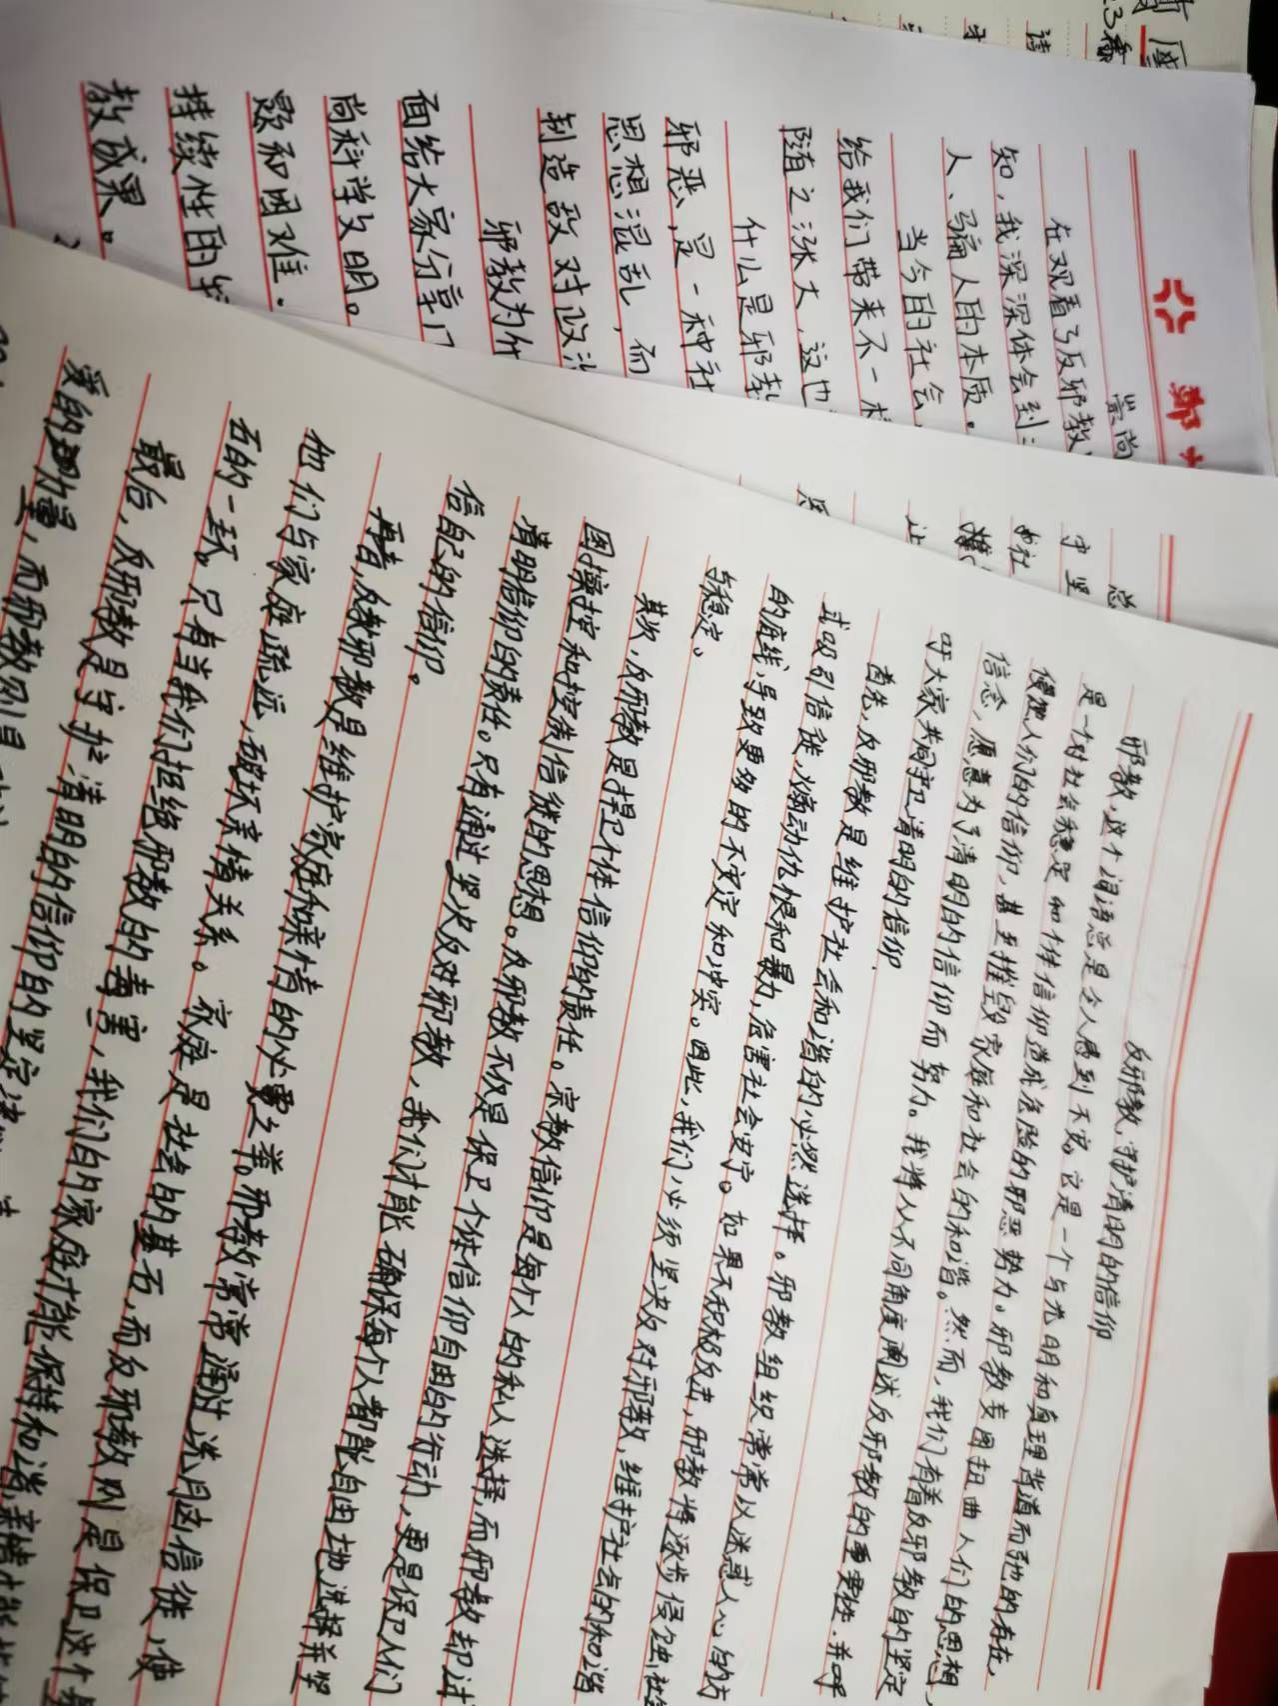 反邪教,守护清明的信仰
邪教,这个词语总是令人感到不安。它是一个与光明和真理背道而驰的存在,
是一个对社会稳定和个体信仰造成危险的邪恶势力。邪教妄图扭曲人们的思想,
侵蚀人们的信仰,甚至摧毁家庭和社会的和谐。然而,我们有着反邪教的坚定
信念,愿意为了清明的信仰而努力。我将从不同角度阐述反邪教的重要性,并呼
吁大家共同守卫清明的信仰.
首先,反邪教是维护社会和谐的必然选择。邪教组织常常以迷惑人心的方
式吸引信徒,煽动仇恨和暴力,危害社会安宁。如果不积极反击,邪教将逐步侵蚀社会
的底线,导致更多的不安定和冲突。因此,我们必须坚决反对邪教,维护社会的和谐
与稳定。
其次,反邪教是捍卫个体信仰的责任。宗教信仰是每个人的私人选择,而邪教却试
图操控和控制信徒的思想。反邪教不仅是保卫个体信仰自由的行动,更是保卫人们
清明信仰的责任。只有通过坚决反对邪教,我们才能确保每个人都能自由地选择并坚
信自己的信仰。
再者,反邪教是维护家庭和亲情的必要之举。邪教常常通过洗脑信徒,使
他们与家庭疏远,破坏亲情关系。家庭是社会的基石,而反邪教则是保卫这个基
石的一环。只有当我们拒绝邪教的毒害,我们的家庭才能保持和谐,亲情才能
最后,反邪教是守护清明的信仰的坚定
爱的力量,而邪教则是
崇尚
在观看了反邪教
知,我深深体会到
人、骗人的本质。
当今的社会
给我们带来不一样
随之涨大,这也
什么是邪教
邪恶,是一种社
思想混乱,而
制造敌对政治
邪教为什
面给大家分享
尚科学文明。
题和困难.
持续性的
教成果。